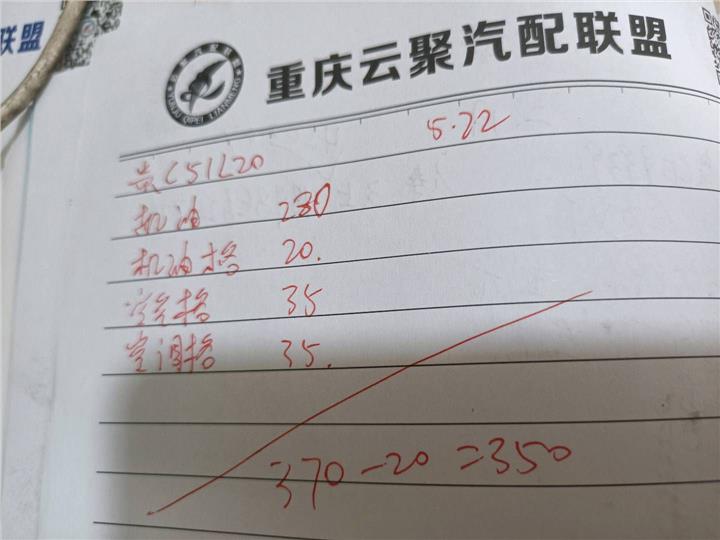 联盟
重庆云聚汽配联盟
YUNJU QIPEI LIANMENG
5.22
贵C51L20
机油 280
机油格 20.
空气格 35
空调格 35.
370-20=350